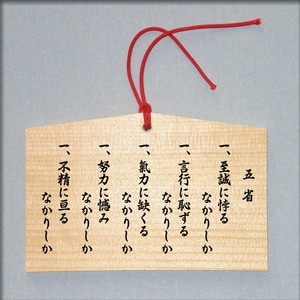 五省
一、至誠に悖る
なかりしか
一、言行に恥ずる
なかりしか
一、氣力に缺くる
なかりしか
一、努力に憾み
なかりしか
一、不精に亘る
なかりしか